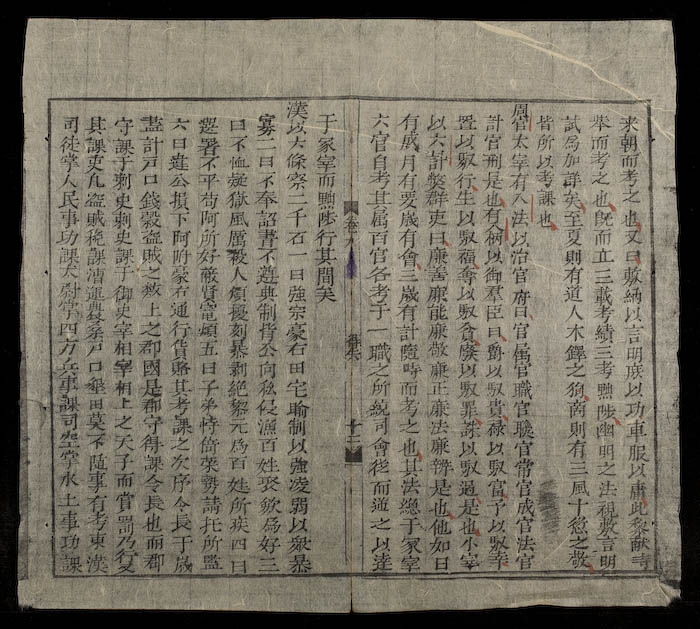 來朝而考之也又曰敷納以言明庶以功車服以庸此黎獻時
舉而考之也既而立三載考績三考黜陟幽明之法視敷言明
試為加詳矣至夏則有遒人木鐸之狥商則有三風十愆之儆
皆所以考課也
周官太宰有八法以治官府曰官屬官職官聯官常官成官法官
計官刑是也有八柄以御羣臣曰爵以馭貴祿以馭富予以馭幸
置以馭行生以馭福奪以馭貧廢以馭罪誅以馭過是也小宰
以六計獘群吏曰廉善廉能廉敬廉正廉法廉辨是也他如日
有成月有要歲有會三歲有計隨時而考之也其法總于冢宰
六官自考其屬百官各考于一職之所統司會從而道之以達
卷九
十二
于冢宰而黜陟行其間矣
漢以六條察二千石一曰強宗豪右田宅踰制以強凌弱以眾暴
寡二曰不奉詔書不遵典制背公向私侵漁百姓聚斂為好三
曰不恤疑獄風厲殺人煩擾刻暴剥絕黎元為百姓所疾四曰
選署不平苟阿所好蔽賢寵頑五曰子弟恃倚榮勢請托所監
六曰違公損下阿附豪右通行貨賂其考課之次序令長于歲
盡計戶口錢穀盜賊之數上之郡國是郡守得課令長也而郡
守課于刺史刺史課于御史宰相宰相上之天子而賞罰乃行矣
其課吏凡盜賊稅課漕運農桑戶口墾田莫不隨事有考東漢
司徒掌人民事功課太尉掌四方兵事課司空掌水土事功課